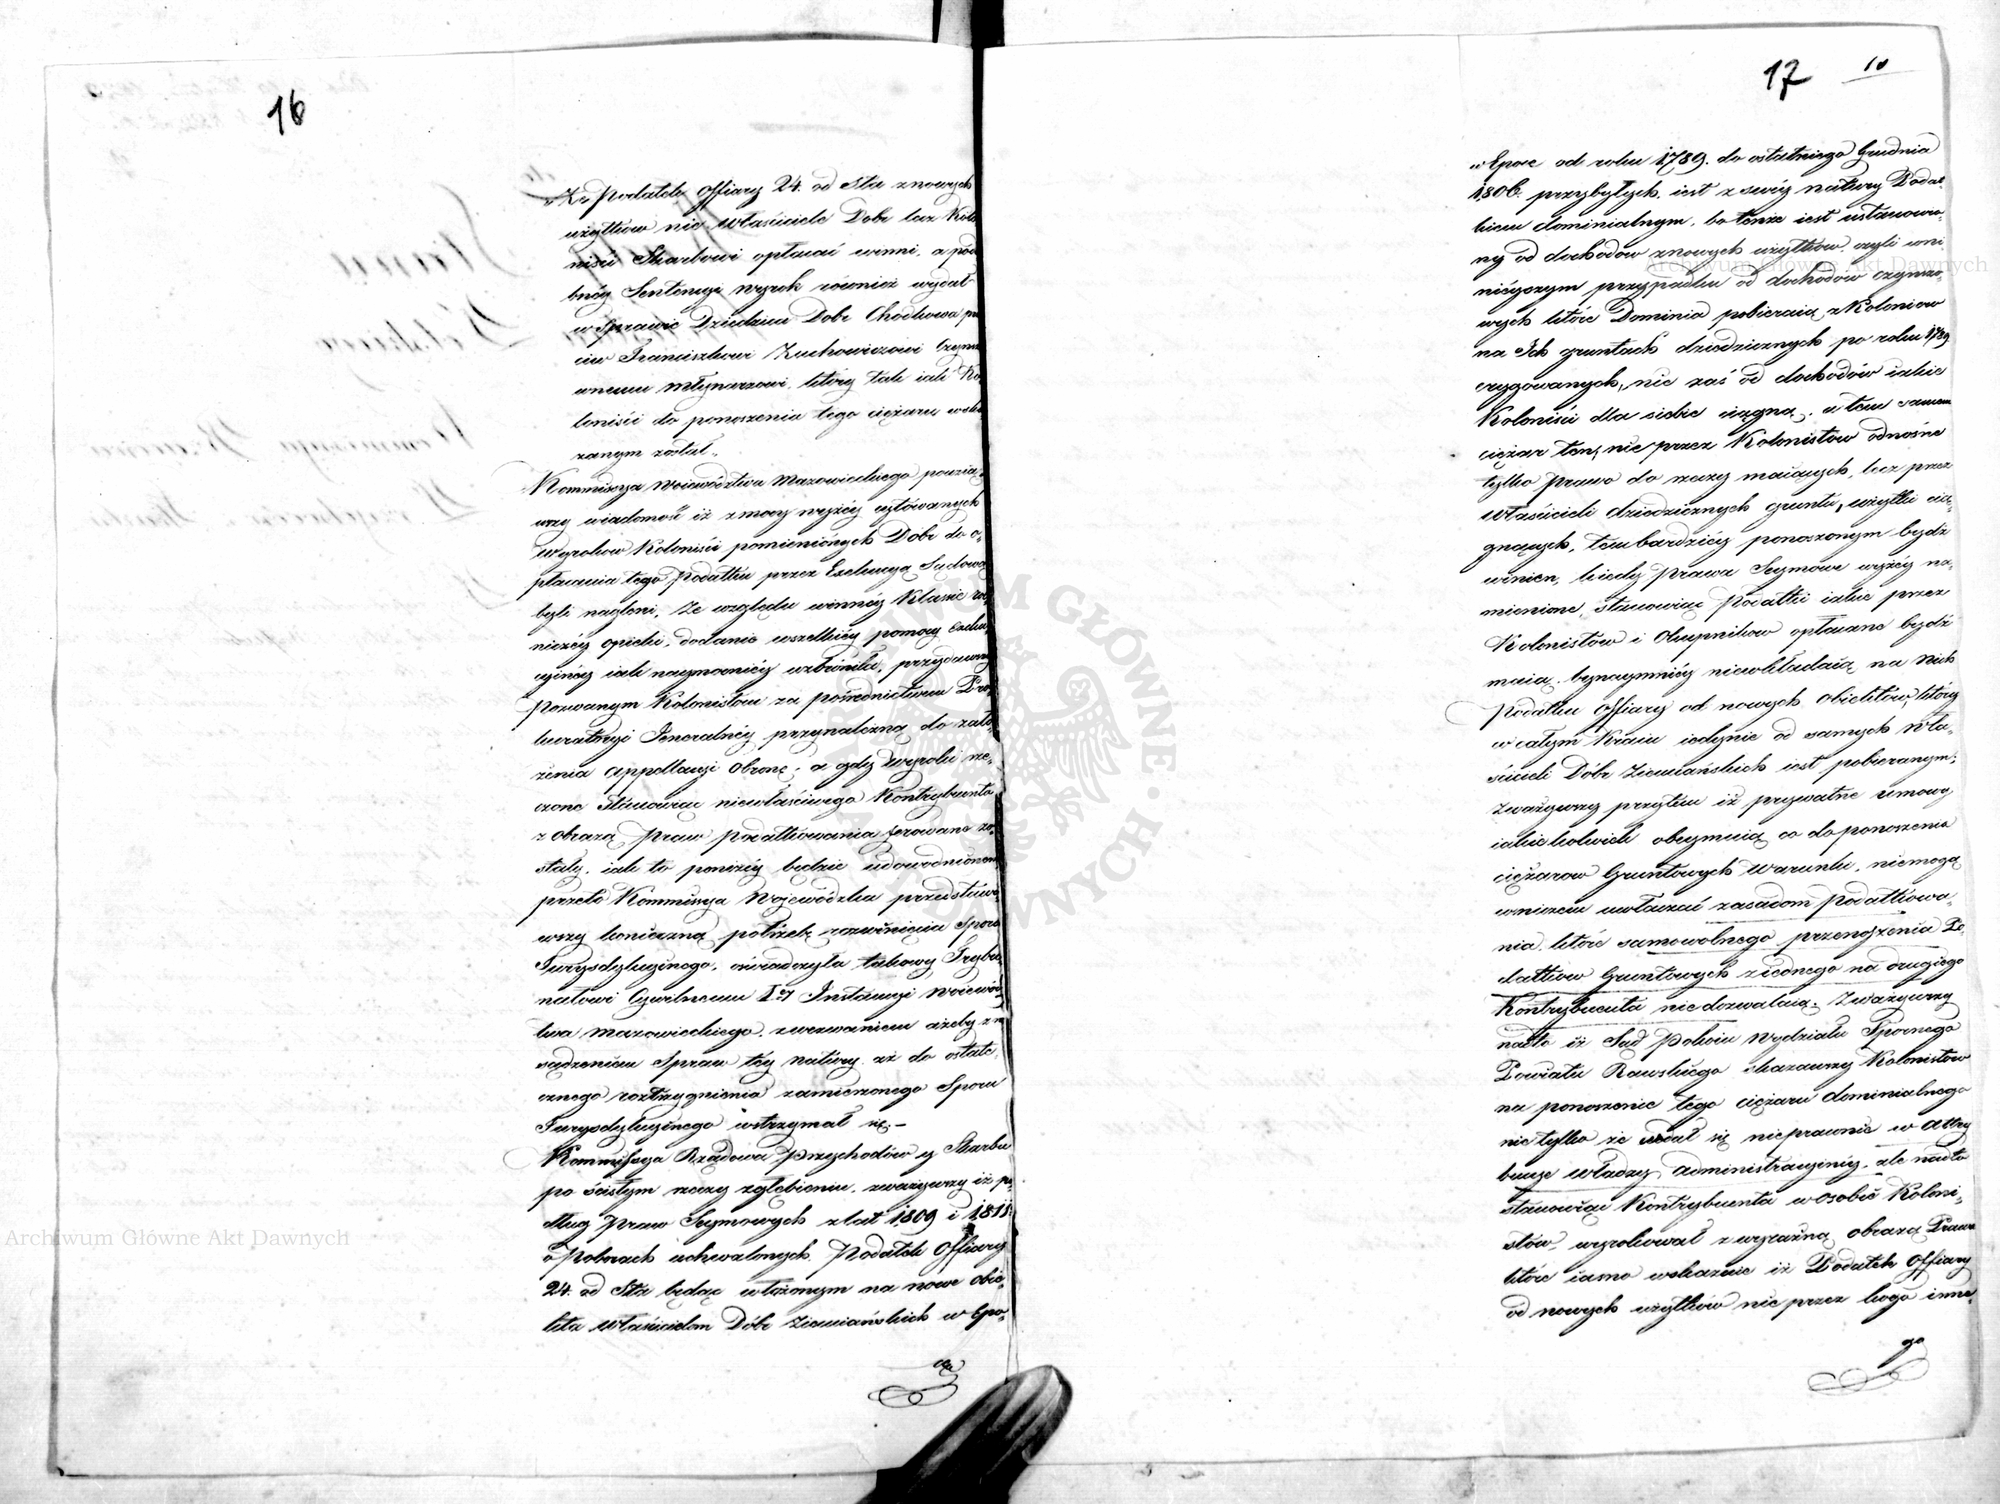 16
„Że Podatek Offiary 24. od Sta znowych
użytków nie Właściciele Dobr lecz Kolo
niści Skarbowi opłacać winni, a podo
bnéj Sentencyi wyrok również wydał
w Sprawie Dziedzica Dobr Chodkowa prze
ciw Franciszkowi Zuchowiczowi Czynszo
wnemu Młynarzowi, który tak iak Ko
loniści do ponoszenia tego ciężaru wska
zanym został„
Kommissya Woiewództwa Mazowieckiego powzią-
wszy wiadomość iż z mocy wyżéy cytowanych
Wyroków Koloniści pomienionych Dobr do o-
płacania tego Podatku przez Exekucyą Sądową
byli nagleni, Ze względu winnéy Klassie rol-
niczéy opieki, dodanie wszelkiéy pomocy Exeku-
cyinéy iak naymocniéy wzbroniła, przydawszy
Pozwanym Kolonistom za pośrednictwem Pro-
kuratoryi Jeneralnéy przynależną do zało-
żenia appellacyi Obronę, a gdy Wyroki rze-
czone stanowiąc niewłaściwego Kontrybuenta
z obrazą praw podatkowania ferowane zo-
stały, iak to poniżéy będzie udowodnionem
przeto Kommissya Wojewódzka przedstawi-
wszy konieczną potrzebę rozwinięcia Sporu
Jurysdykcyinego, oświadczyła takowy Trybu-
nałowi Cywilnemu I-éy Instancyi Woiewódz-
twa Mazowieckiego, z wezwaniem ażeby z roz-
sądzeniem Spraw téy natury aż do ostate-
cznego roztrzygnienia zamierzonego Sporu
Jurysdykcyinego wstrzymał się.–
Kommissya Rządowa Przychodów y Skarbu
po ścisłym rzeczy zgłębieniu, zważywszy iż po-
dług Praw Seymowych z lat 1809 i 1811:
o Poborach uchwalonych Podatek Offiary
24. od Sta będąc włożonym na nowe obie-
kta Właścicielom Dóbr Ziemiańskich w Epo-
ce
17
10
„w Epoce od roku 1789. do ostatniego Grudnia
1806. przybyłych, iest z swéy natury Podat-
kiem dominialnym, bo tenże iest ustanowio-
ny od dochodów znowych użytków, czyli w ni-
niéyszym przypadku od dochodów czynszo-
wych które Dominia pobieraią z Koloniow
na Ich gruntach dziedzicznych po roku 1789
erygowanych, nie zaś od dochodów iakie
Koloniści dla siebie ciągną, a tem samem
ciężar ten, nie przez Kolonistów odnośne
tylko prawo do rzeczy maiących, lecz przez
Właścicieli dziedzicznych gruntu, użytki cią-
gnących, tembardziéy ponoszonym bydź
winien, kiedy Prawa Seymowe wyżéy na-
mienione, stanowiąc Podatki iakie przez
Kolonistów i Okupników opłacane bydź
maią, bynaymniéy niewkładaią na Nich
Podatku Offiary od nowych Obiektów, który
w całym Kraiu iedynie od samych Wła-
ścicieli Dóbr Ziemiańskich iest pobieranym;
Zważywszy przytém iż prywatne umowy
iakiekolwiek obeymuią co do ponoszenia
ciężarow Gruntowych warunki, niemogą
wniczem uwłaczać zasadom Podatkowa-
nia, które samowolnego przenoszenia Po-
datkow Gruntowych z iednego na drugiego
Kontrybuenta nie dozwalaią; Zważywszy
nadto iż Sąd Pokoiu Wydziału Spornego
Powiatu Rawskiego skazawszy Kolonistów
na ponoszenie tego ciężaru dominialnego
nietylko że wdał się nieprawnie w attry
bucye Władzy administracyinéy, ale nadto
stanowiąc Kontrybuenta w osobie Koloni-
stów, wyrokował z wyraźną obrazą Prawa
które iasno wskazuie iż Podatek Offiary
od nowych użytków nie przez kogo inne-
go
Archiwum Główne Akt Dawnych
Archiwum Główne Akt Dawnych